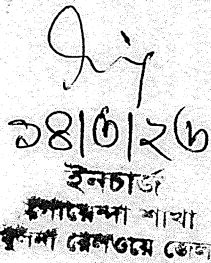 ১৪|৩|২৬
ইনচার্জ
গোয়েন্দা শাখা
খুলনা রেলওয়ে জেলা